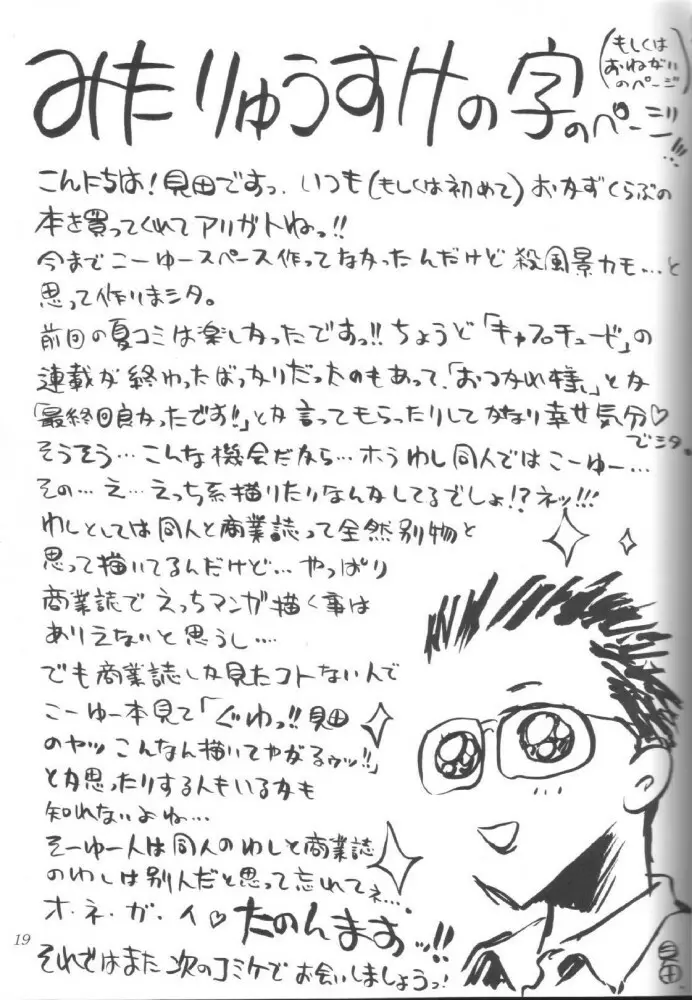 みたりゅうすけの字のページ!!!
(もしくはおねがいのページ)
こんにちは!見田ですっ、いつも(もしくは初めて)おかずくらぶの
本を買ってくれてアリガトねっ!!
今までこーゆースペース作ってなかったんだけど殺風景カモ…と
思って作りまシタ。
前回の夏コミは楽しかったですっ!!ちょうど「キャプロチュード」の
連載が終わったばっかりだったのもあって、「おつかれ様」とか
「最終回良かったです!」とか言ってもらったりしてかなり幸せ気分♡
でシタ。
そうそう…こんな機会だから…ホラわし同人ではこーゆー…
その…え…えっち系描いたりなんかしてるでしょ!?ネッ!!!
わしとしては同人と商業誌って全然別物と
思って描いてるんだけど…やっぱり
商業誌でえっちマンガ描く事は
ありえないと思うし…
でも商業誌しか見たコトない人で
こーゆー本見て「ぐわっ!!見田
のヤツこんなん描いてやがるゥッ!!」
とか思ったりする人もいるかも
知れないよね…
そーゆー人は同人のわしと商業誌
のわしは別人だと思って忘れてネ…
オ・ネ・ガ・イ♡たのんますっ…!!
それではまた次のコミケでお会いしましょうっ!
見田
19